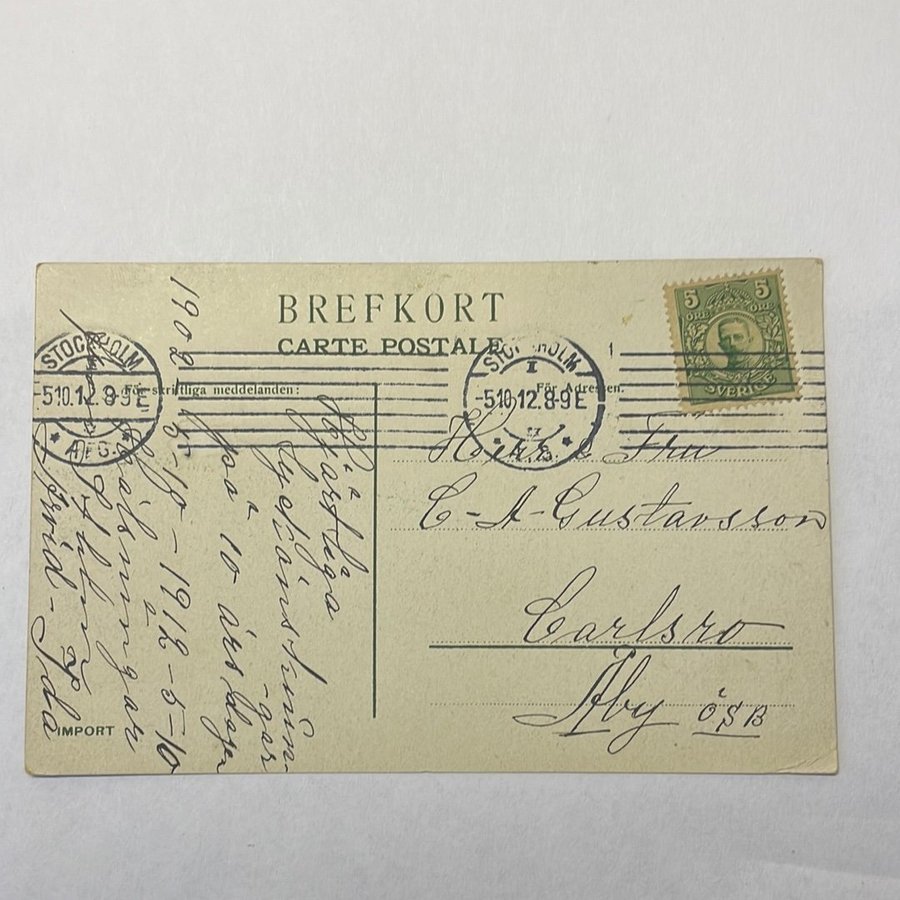 BREFKORT
CARTE POSTALE
5 5
ÖRE ÖRE
SVERIGE
STOCKHOLM
-5.10.12.8-9E
* AFG. *
STOCKHOLM
1
-5.10.12.8-9E
1
För skriftliga meddelanden:
För Adressen.
Herr & Fru
C-A-Gustavsson
Carlsro
Åby ÖSB
Hjärtliga
lyckönsknin-
-gar
på 10 årsdagen
1902 5-10-1912-5-10
Hälsningar
Arvid - Ida
IMPORT